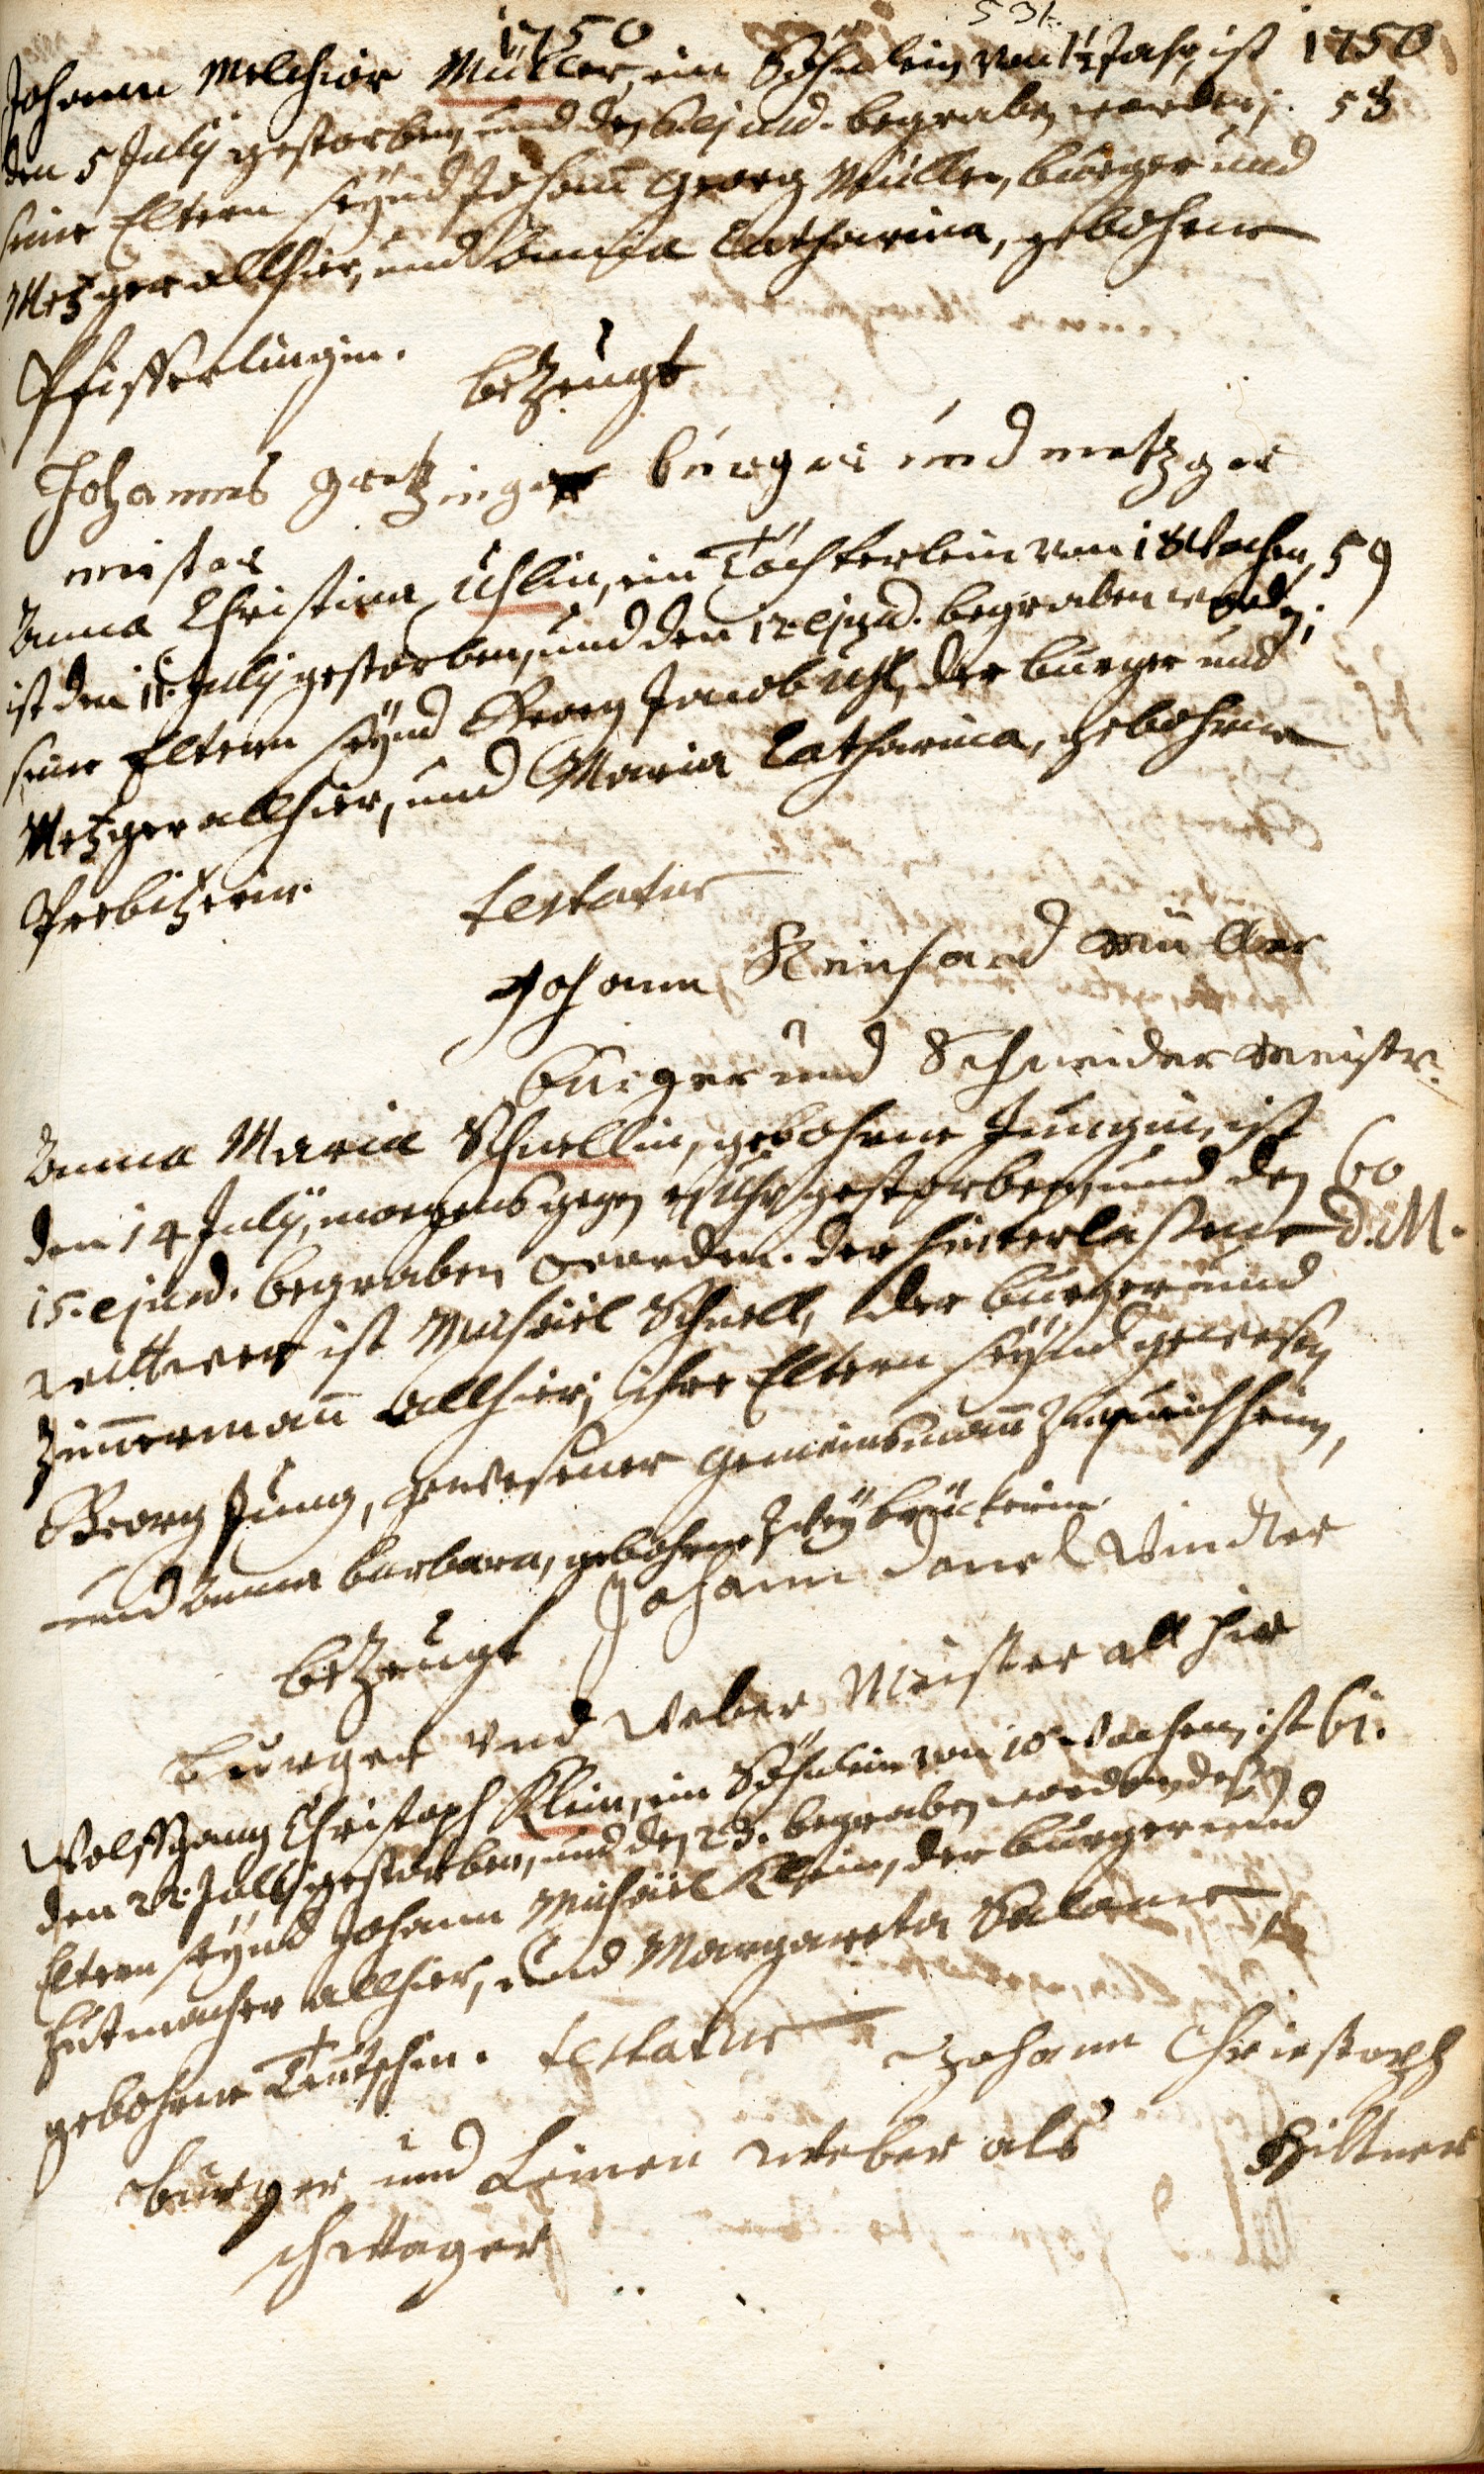 531.
1750
Johann Melchior Müller, ein Söhnlein von 1½ Jahr, ist 1750
den 5 July gestorben, und den 6. ejusd. begraben worden; 58
seine Eltern seÿnd Johann Georg Müller, burger und
Metzger allhier, und Anna Catharina, gebohrne
Pfisterlingin.
bezeugt
Johannes gretzinger burger und metzger
meister
Anna Christina Uhlin, ein Töchterlein von 18 Wochen, 59
ist den 11. July gestorben, und den 12 ejusd. begraben worden;
seine Eltern seÿnd Georg Jacob Uhl, der burger und
Metzger allhier, und Maria Catharina, gebohrne
testatur
Johann Reinhard Müller
burger und Schneider Meister.
Anna Maria Schnellin, gebohrne Jungin, ist
den 14 July, morgens gegen Uhr gestorben, und den 60
15. ejusd. begraben worden. der hinterlassene d. M.
wittwer ist Michael Schnell, der burger und
Zimmermann allhier; ihre Eltern seÿnd gewesen
Georg Jung, gewesener gemeinsmann zu
und Anna barbara, gebohrne Zweÿbrückerin.
bezeugt Johann Daniel Windter
burger und Weber Meister all hier
Wolffgang Christoph Klein, ein Söhnlein von 10 Wochen, ist 61.
den 22. July gestorben, und den 23. begraben worden, dessen
Eltern seÿnd Johann Michael Klein, der burger und
Hutmacher allhier, und Margareta Salome
gebohrne Teutschin. testatur Johann Christoph
burger und Leinen weber als Hiltner
schwager